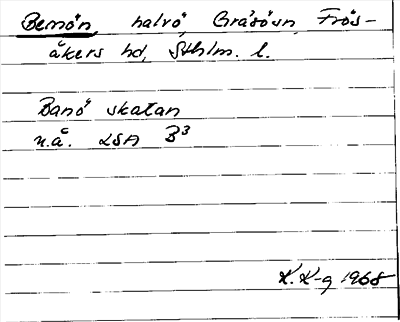 Bemön, halvö, Gräsö sn, Frös-
åkers hd, Sthlm. l.
Banö skatan
n.ä. LSA B³
K. K-g 1968